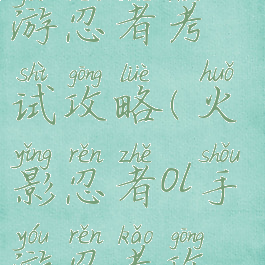 游忍者考
shì gōng lüè huǒ
试攻略(火
yǐng rěn zhě shǒu
影忍者ol手
yóu rěn kǎo gōng